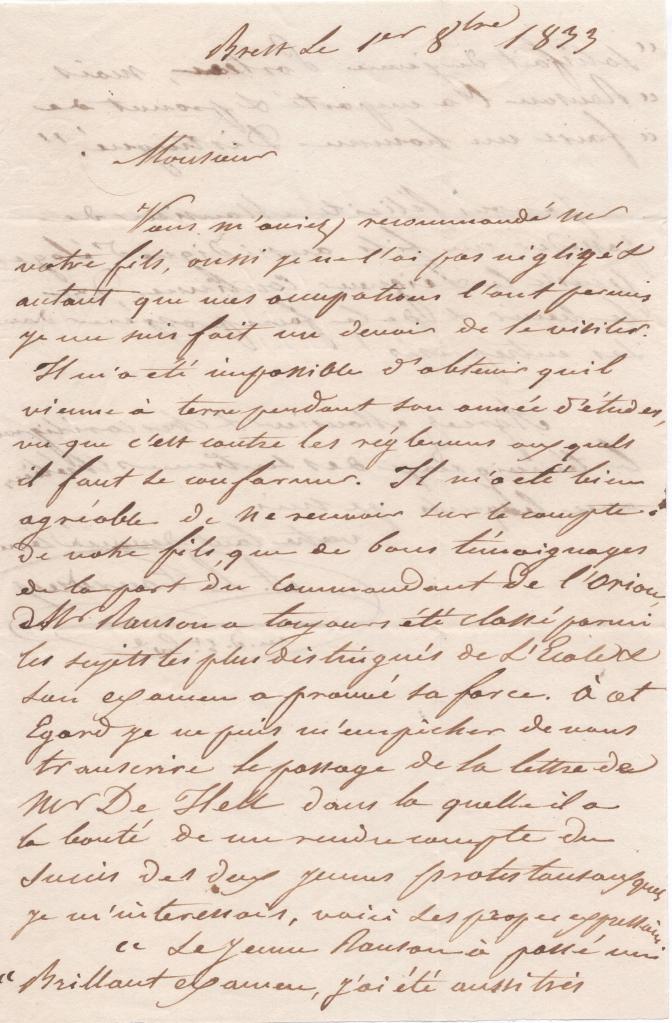 Brest Le 1er 8bre 1833
Monsieur
Vous m'aviez recommandé Mr
votre fils, aussi je ne l'ai pas négligé &
autant que mes occupations l'ont permis
je me suis fait un devoir de le visiter.
Il m'a été impossible d'obtenir quil
vienne à terre pendant son année d'études,
vu que c'est contre les reglemens auxquels
il faut se conformer. Il m'a été bien
agréable de ne recevoir sur le compte
de votre fils, que de bons témoignages
de la part du Commandant de l'Orion,
Mr Ranson a toujours été classé parmi
les sujets les plus distingués de L'Ecole &
son examen a prouvé sa force. À cet
Egard je ne puis m'empêcher de vous
transcrire le passage de la lettre de
Mr De Hell dans la quelle il a
la bonté de me rendre compte du
Succès des deux jeunes protestans auxquels
je m'interessais, voici ses propres expressions.
" Le jeune Ranson à passé un
" Brillant examen, j'ai été aussi très